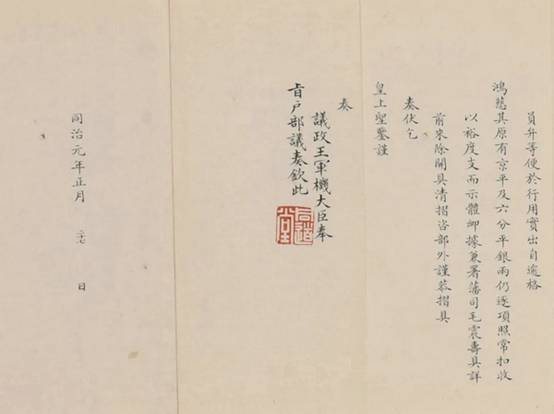 員弁等便於行用實出自逾格
鴻慈其原有京平及六分平銀兩仍逐項照常扣收
以裕度支而示體卹據兼署藩司毛震壽具詳
前來除開具清摺咨部外謹恭摺具
奏伏乞
皇上聖鑒謹
奏
議政王軍機大臣奉
旨戶部議奏欽此
同道堂
同治元年正月 日